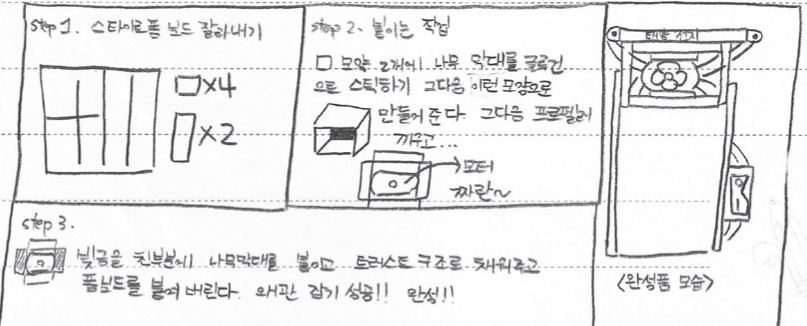 step 1. 스타이로폼 보드 잘라내기
□×4
□×2
step 2. 붙이는 작업
□ 모양 2개에 나무 막대를 글루건
으로 스틱하기 그다음 이런 모양으로
만들어 준다. 그다음 프로펠러
끼우고...
→모터
짜란~
step 3.
빗금을 친부분에 나무막대를 붙이고 트러스트 구조로 채워주고
폼보드를 붙여 버린다. 외관 잡기 성공!! 완성!!
태풍 선지
<완성품 모습>